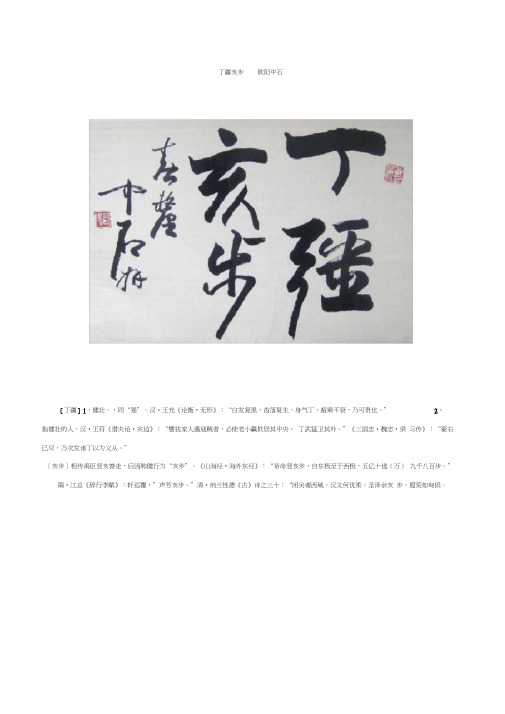 丁疆亥步 欧阳中石
丁疆
亥步
春釐
中石拜
[丁疆] 1、健壮。，同“强”。汉·王充《论衡·无形》：“白发复黑，齿落复生，身气丁，超乘不衰，乃可贵也。” 2、
指健壮的人。汉·王符《潜夫论·实边》：“譬犹家人遇寇贼者，必使老小羸软居其中央， 丁武猛卫其外。”《三国志·魏志·梁 习传》：“豪右
已尽，乃次发诸丁以为义从。”
〔亥步〕相传禹臣竖亥善走，后因称健行为“亥步”。《山海经·海外东经》：“帝命竖亥步，自东极至于西极，五亿十选（万） 九千八百步。”
隋·江总《辞行李赋》：轩巡覆，”声芳亥步。”清·纳兰性德《古》诗之三十：“闭关谢西域，汉文何优柔。圣泽余亥 步，遐荒如甸侯。